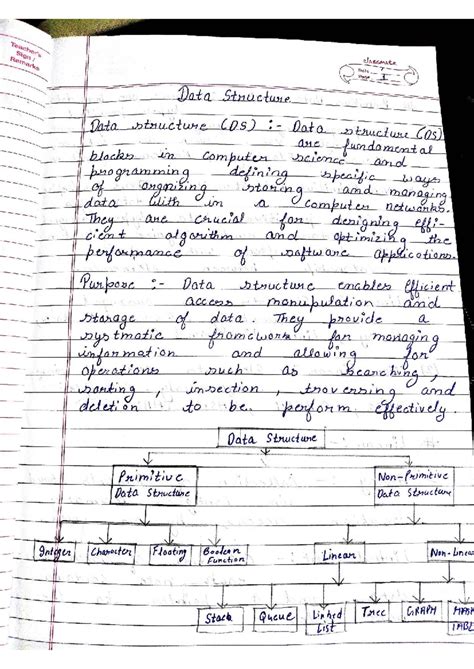 Teacher's
Sign /
Remarks
Date
Page 1
Data Structure
Data structure (DS) :- Data structure (DS)
are fundamental
blocks in computer science and
programming defining specific ways
of organizing storing and managing
data with in a computer networks.
They are crucial for designing effi-
cient algorithm and optimizing the
performance of software applications.
Purpose :- Data structure enables efficient
access manupulation and
storage of data. They provide a
systmatic framework for managing
information and allowing for
operations such as searching,
sorting, insection, traversing and
deletion to be perform effectively.
Data Structure
Primitive Non-Primitive
Data Structure Data Structure
Integer Character Floating Boolean Linear Non-Linea
Function
Stack Queue Linked Tree GRAPH HASH
List TABLE